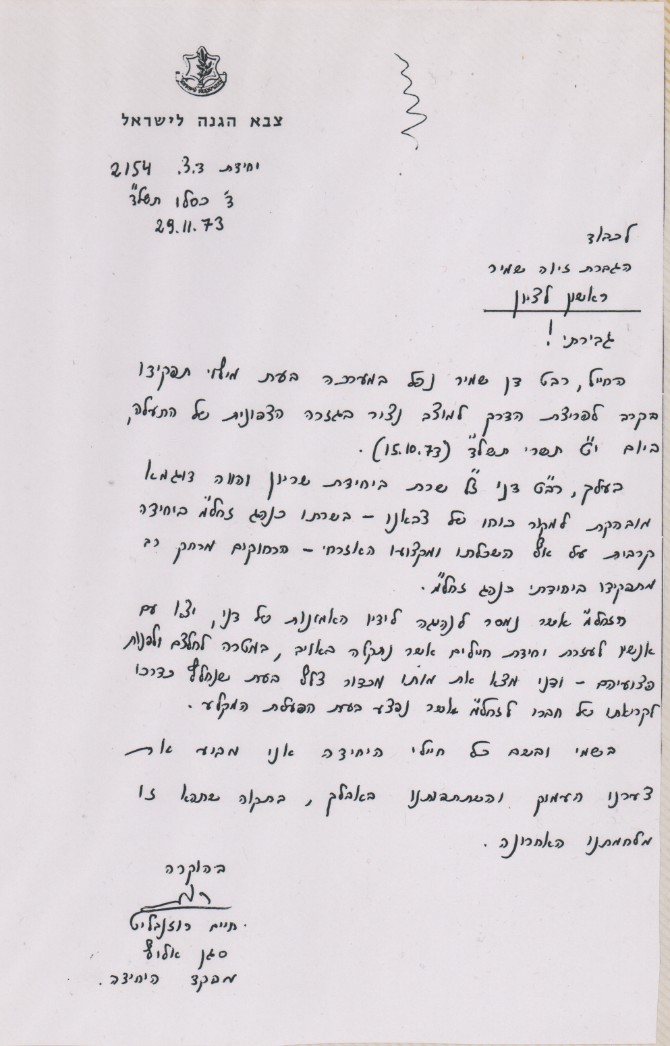 צבא הגנה לישראל
יחידת ד.צ. 2154
ד' כסלו תשל"ד
29.11.73
לכבוד
הגברת זיוה שמיר
ראשון לציון
גבירתי!
החייל, רבט דן שמיר נפל במערכה בעת מילוי תפקידו
בקרב לפריצת הדרך למוצב נציר בגזרה הצפונית של התעלה,
ביום י"ט תשרי תשל"ד (15.10.73).
בעלך, רב"ט דני ז"ל שרת ביחידת שריון והווה דוגמא
מובהקת למקור כוחו של צבאנו - בשרתו כנהג זחל"מ ביחידה
קרבית על אף השכלתו ומקצועו האזרחי - הרחוקים מרחק רב
מתפקידו ביחידתי כנהג זחל"מ.
הזחל"מ אשר נמסר לנהיגה לידיו האמונות של דני, יצאו עם
אנשיו לעזרת יחידת חיילים אשר נתקלה באויב, במטרה לחלצם ולפנות
פצועיהם - ודני מצא את מותו מכדור צלף בעת שנחלץ כדרכו
לקריאתו של חברו לזחל"מ אשר נפצע בעת הפעלת המקלע.
בשמי ובשם כל חיילי היחידה אני מביע את
צערנו העמוק והשתתפותנו באבלך, בתקוה שתהא זו
מלחמתנו האחרונה.
בהוקרה
חיים רוזנבליט
סגן אלוף
מפקד היחידה.